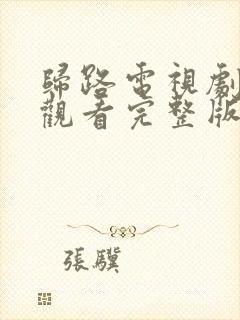 歸路電視劇
觀看完整版
張驥